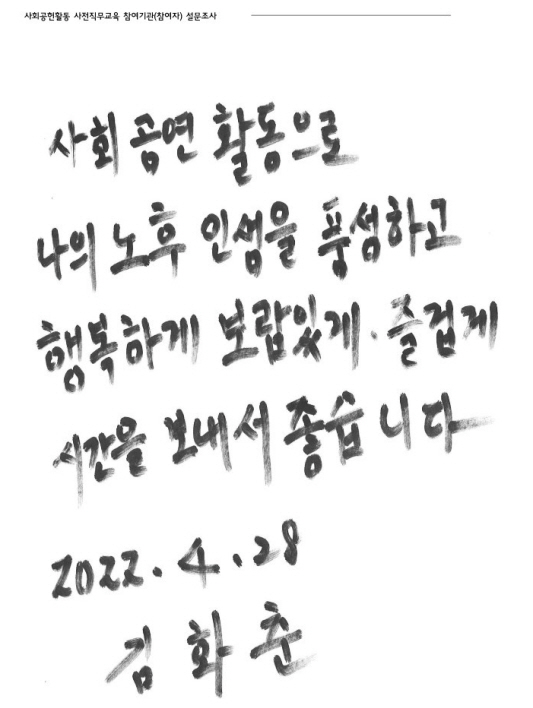 사회공헌활동 사전직무교육 참여기관(참여자) 설문조사
사회 공연 활동으로
나의 노후 인생을 풍성하고
행복하게 보람있게·즐겁게
시간을 보내서 좋습니다
2022.4.28
김화춘